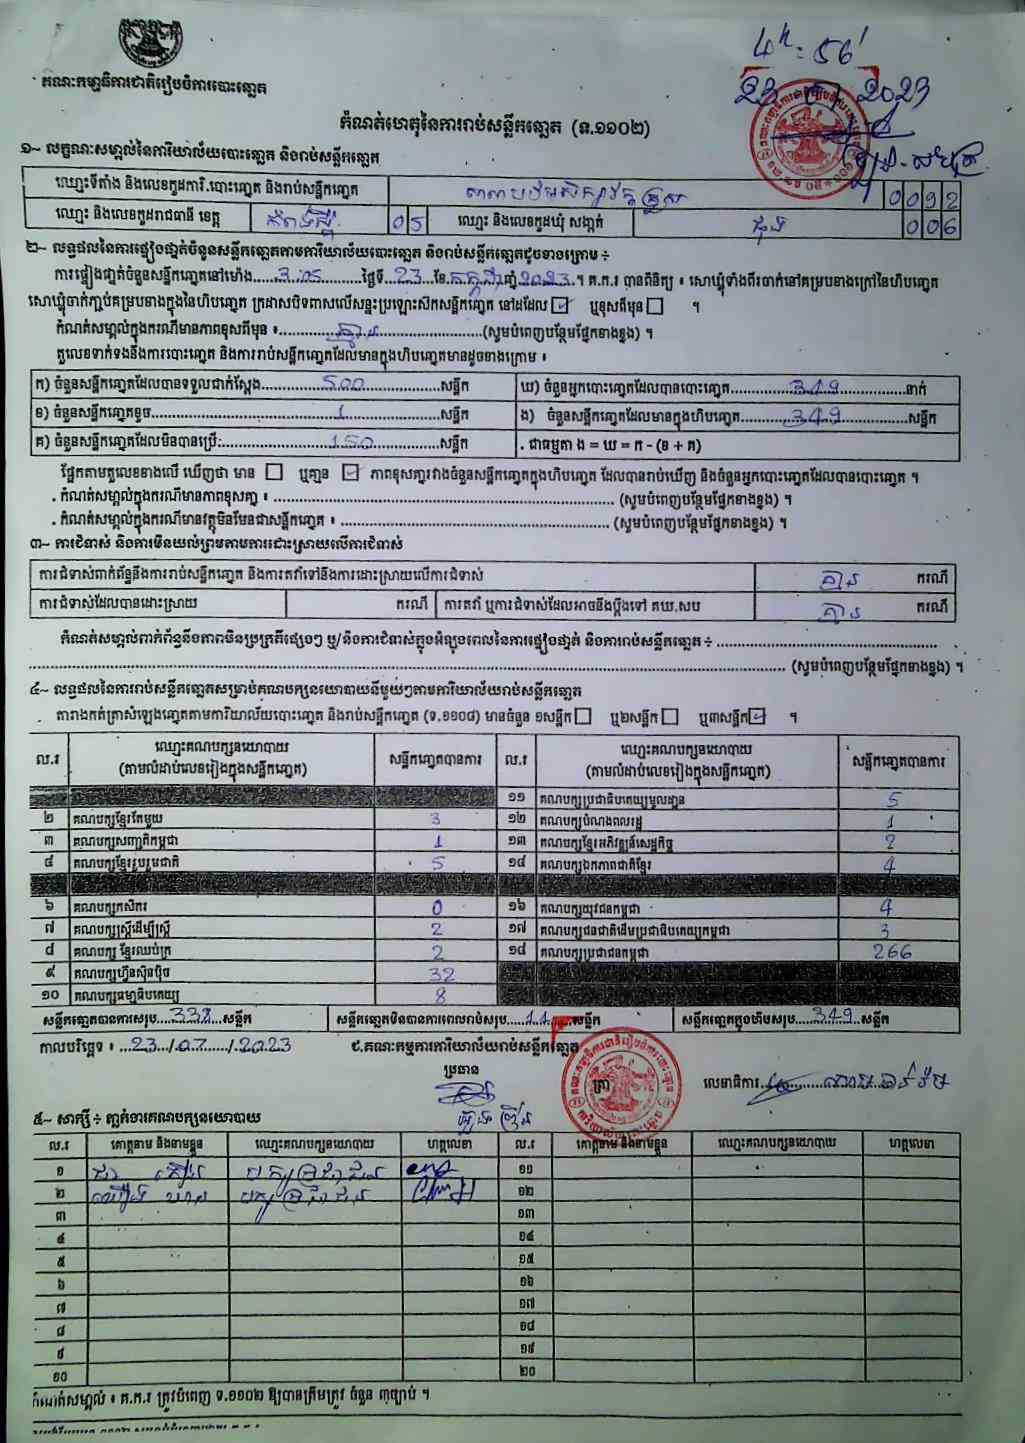 4h: 56'
គណៈកម្មាធិការជាតិរៀបចំការបោះឆ្នោត
23 2023
កំណត់ហេតុនៃការរាប់សន្លឹកឆ្នោត (ទ.១១០២)
១~ លក្ខណៈសម្គាល់នៃការិយាល័យបោះឆ្នោត និងរាប់សន្លឹកឆ្នោត
ឈ្មោះទីតាំង និងលេខកូដការិ.បោះឆ្នោត និងរាប់សន្លឹកឆ្នោត 0092
ឈ្មោះ និងលេខកូដរាជធានី ខេត្ត កំពង់ស្ពឺ 05 ឈ្មោះ និងលេខកូដឃុំ សង្កាត់ 006
២~ លទ្ធផលនៃការផ្ទៀងផ្ទាត់ចំនួនសន្លឹកឆ្នោតតាមការិយាល័យបោះឆ្នោត និងរាប់សន្លឹកឆ្នោតដូចខាងក្រោម ÷
ការផ្ទៀងផ្ទាត់ចំនួនសន្លឹកឆ្នោតនៅម៉ោង....3:05....ថ្ងៃទី..23..ខែ.កក្កដា.ឆ្នាំ.2023.។ គ.ក.រ បានពិនិត្យ ៖ សោឃ្លុំទាំងពីរចាក់នៅគម្របខាងក្រៅនៃហិបឆ្នោត
សោឃ្លុំចាក់ភ្ជាប់គម្របខាងក្នុងនៃហិបឆ្នោត ក្រដាសបិទពាសលើសន្ទះប្រឡោះស៊កសន្លឹកឆ្នោត នៅដដែល ☑ ឬខុសពីមុន ☐ ។
កំណត់សម្គាល់ក្នុងករណីមានភាពខុសពីមុន ៖....គ្មាន....(សូមបំពេញបន្ថែមផ្នែកខាងខ្នង) ។
តួលេខទាក់ទងនឹងការបោះឆ្នោត និងការរាប់សន្លឹកឆ្នោតដែលមានក្នុងហិបឆ្នោតមានដូចខាងក្រោម ៖
ក) ចំនួនសន្លឹកឆ្នោតដែលបានទទួលជាក់ស្តែង....500....សន្លឹក ឃ) ចំនួនអ្នកបោះឆ្នោតដែលបានបោះឆ្នោត....349....នាក់
ខ) ចំនួនសន្លឹកឆ្នោតខូច....1....សន្លឹក ង) ចំនួនសន្លឹកឆ្នោតដែលមានក្នុងហិបឆ្នោត....349....សន្លឹក
គ) ចំនួនសន្លឹកឆ្នោតដែលមិនបានប្រើ:....150....សន្លឹក . ជាធម្មតា ង = ឃ = ក - (ខ + គ)
ផ្អែកតាមតួលេខខាងលើ ឃើញថា មាន ☐ ឬគ្មាន ☑ ភាពខុសគ្នារវាងចំនួនសន្លឹកឆ្នោតក្នុងហិបឆ្នោត ដែលបានរាប់ឃើញ និងចំនួនអ្នកបោះឆ្នោតដែលបានបោះឆ្នោត ។
. កំណត់សម្គាល់ក្នុងករណីមានភាពខុសគ្នា ៖ ........ (សូមបំពេញបន្ថែមផ្នែកខាងខ្នង) ។
. កំណត់សម្គាល់ក្នុងករណីមានវត្ថុមិនមែនជាសន្លឹកឆ្នោត ៖ ........ (សូមបំពេញបន្ថែមផ្នែកខាងខ្នង) ។
៣~ ការជំទាស់ និងការមិនយល់ព្រមតាមការដោះស្រាយលើការជំទាស់
ការជំទាស់ពាក់ព័ន្ធនឹងការរាប់សន្លឹកឆ្នោត និងការតវ៉ាទៅនឹងការដោះស្រាយលើការជំទាស់ គ្មាន ករណី
ការជំទាស់ដែលបានដោះស្រាយ ករណី ការតវ៉ា ឬការជំទាស់ដែលអាចនឹងប្តឹងទៅ គឃ.សប គ្មាន ករណី
កំណត់សម្គាល់ពាក់ព័ន្ធនឹងភាពមិនប្រក្រតីផ្សេងៗ ឬ/និងការជំទាស់ក្នុងអំឡុងពេលនៃការផ្ទៀងផ្ទាត់ និងការរាប់សន្លឹកឆ្នោត ÷ ........
........ (សូមបំពេញបន្ថែមផ្នែកខាងខ្នង) ។
៤~ លទ្ធផលនៃការរាប់សន្លឹកឆ្នោតសម្រាប់គណបក្សនយោបាយនីមួយៗតាមការិយាល័យរាប់សន្លឹកឆ្នោត
តារាងកត់ត្រាសំឡេងឆ្នោតតាមការិយាល័យបោះឆ្នោត និងរាប់សន្លឹកឆ្នោត (ទ.១១០៨) មានចំនួន ១សន្លឹក ☐ ឬ២សន្លឹក ☐ ឬ៣សន្លឹក ☑ ។
ល.រ ឈ្មោះគណបក្សនយោបាយ (តាមលំដាប់លេខរៀងក្នុងសន្លឹកឆ្នោត) សន្លឹកឆ្នោតបានការ ល.រ ឈ្មោះគណបក្សនយោបាយ (តាមលំដាប់លេខរៀងក្នុងសន្លឹកឆ្នោត) សន្លឹកឆ្នោតបានការ
១១ គណបក្សប្រជាធិបតេយ្យមូលដ្ឋាន 5
២ គណបក្សខ្មែរតែមួយ 3 ១២ គណបក្សបំណងពលរដ្ឋ 1
៣ គណបក្សសញ្ជាតិកម្ពុជា 1 ១៣ គណបក្សខ្មែរអភិវឌ្ឍន៍សេដ្ឋកិច្ច 2
៤ គណបក្សខ្មែររួបរួមជាតិ 5 ១៤ គណបក្សឯកភាពជាតិខ្មែរ 4
៦ គណបក្សកសិករ 0 ១៦ គណបក្សយុវជនកម្ពុជា 4
៧ គណបក្សស្ត្រីដើម្បីស្ត្រី 2 ១៧ គណបក្សជនជាតិដើមប្រជាធិបតេយ្យកម្ពុជា 3
៨ គណបក្ស ខ្មែរឈប់ក្រ 2 ១៨ គណបក្សប្រជាជនកម្ពុជា 266
៩ គណបក្សហ្វ៊ុនស៊ិនប៉ិច 32
១០ គណបក្សធម្មាធិបតេយ្យ 8
សន្លឹកឆ្នោតបានការសរុប....338....សន្លឹក សន្លឹកឆ្នោតមិនបានការពេលរាប់សរុប.....11.....សន្លឹក សន្លឹកឆ្នោតក្នុងហិបសរុប....349...សន្លឹក
កាលបរិច្ឆេទ ៖ ...23.../.07..../.2023 ជ.គណៈកម្មការការិយាល័យរាប់សន្លឹកឆ្នោត
ប្រធាន
លេខាធិការ
៥~ សាក្សី ÷ ភ្នាក់ងារគណបក្សនយោបាយ
ល.រ គោត្តនាម និងនាមខ្លួន ឈ្មោះគណបក្សនយោបាយ ហត្ថលេខា ល.រ គោត្តនាម និងនាមខ្លួន ឈ្មោះគណបក្សនយោបាយ ហត្ថលេខា
១ បក្សប្រជាជន ១១
២ បក្សប្រជាជន ១២
៣ ១៣
៤ ១៤
៥ ១៥
៦ ១៦
៧ ១៧
៨ ១៨
៩ ១៩
១០ ២០
កំណត់សម្គាល់ ៖ គ.ក.រ ត្រូវបំពេញ ទ.១១០២ ឱ្យបានត្រឹមត្រូវ ចំនួន ៣ច្បាប់ ។